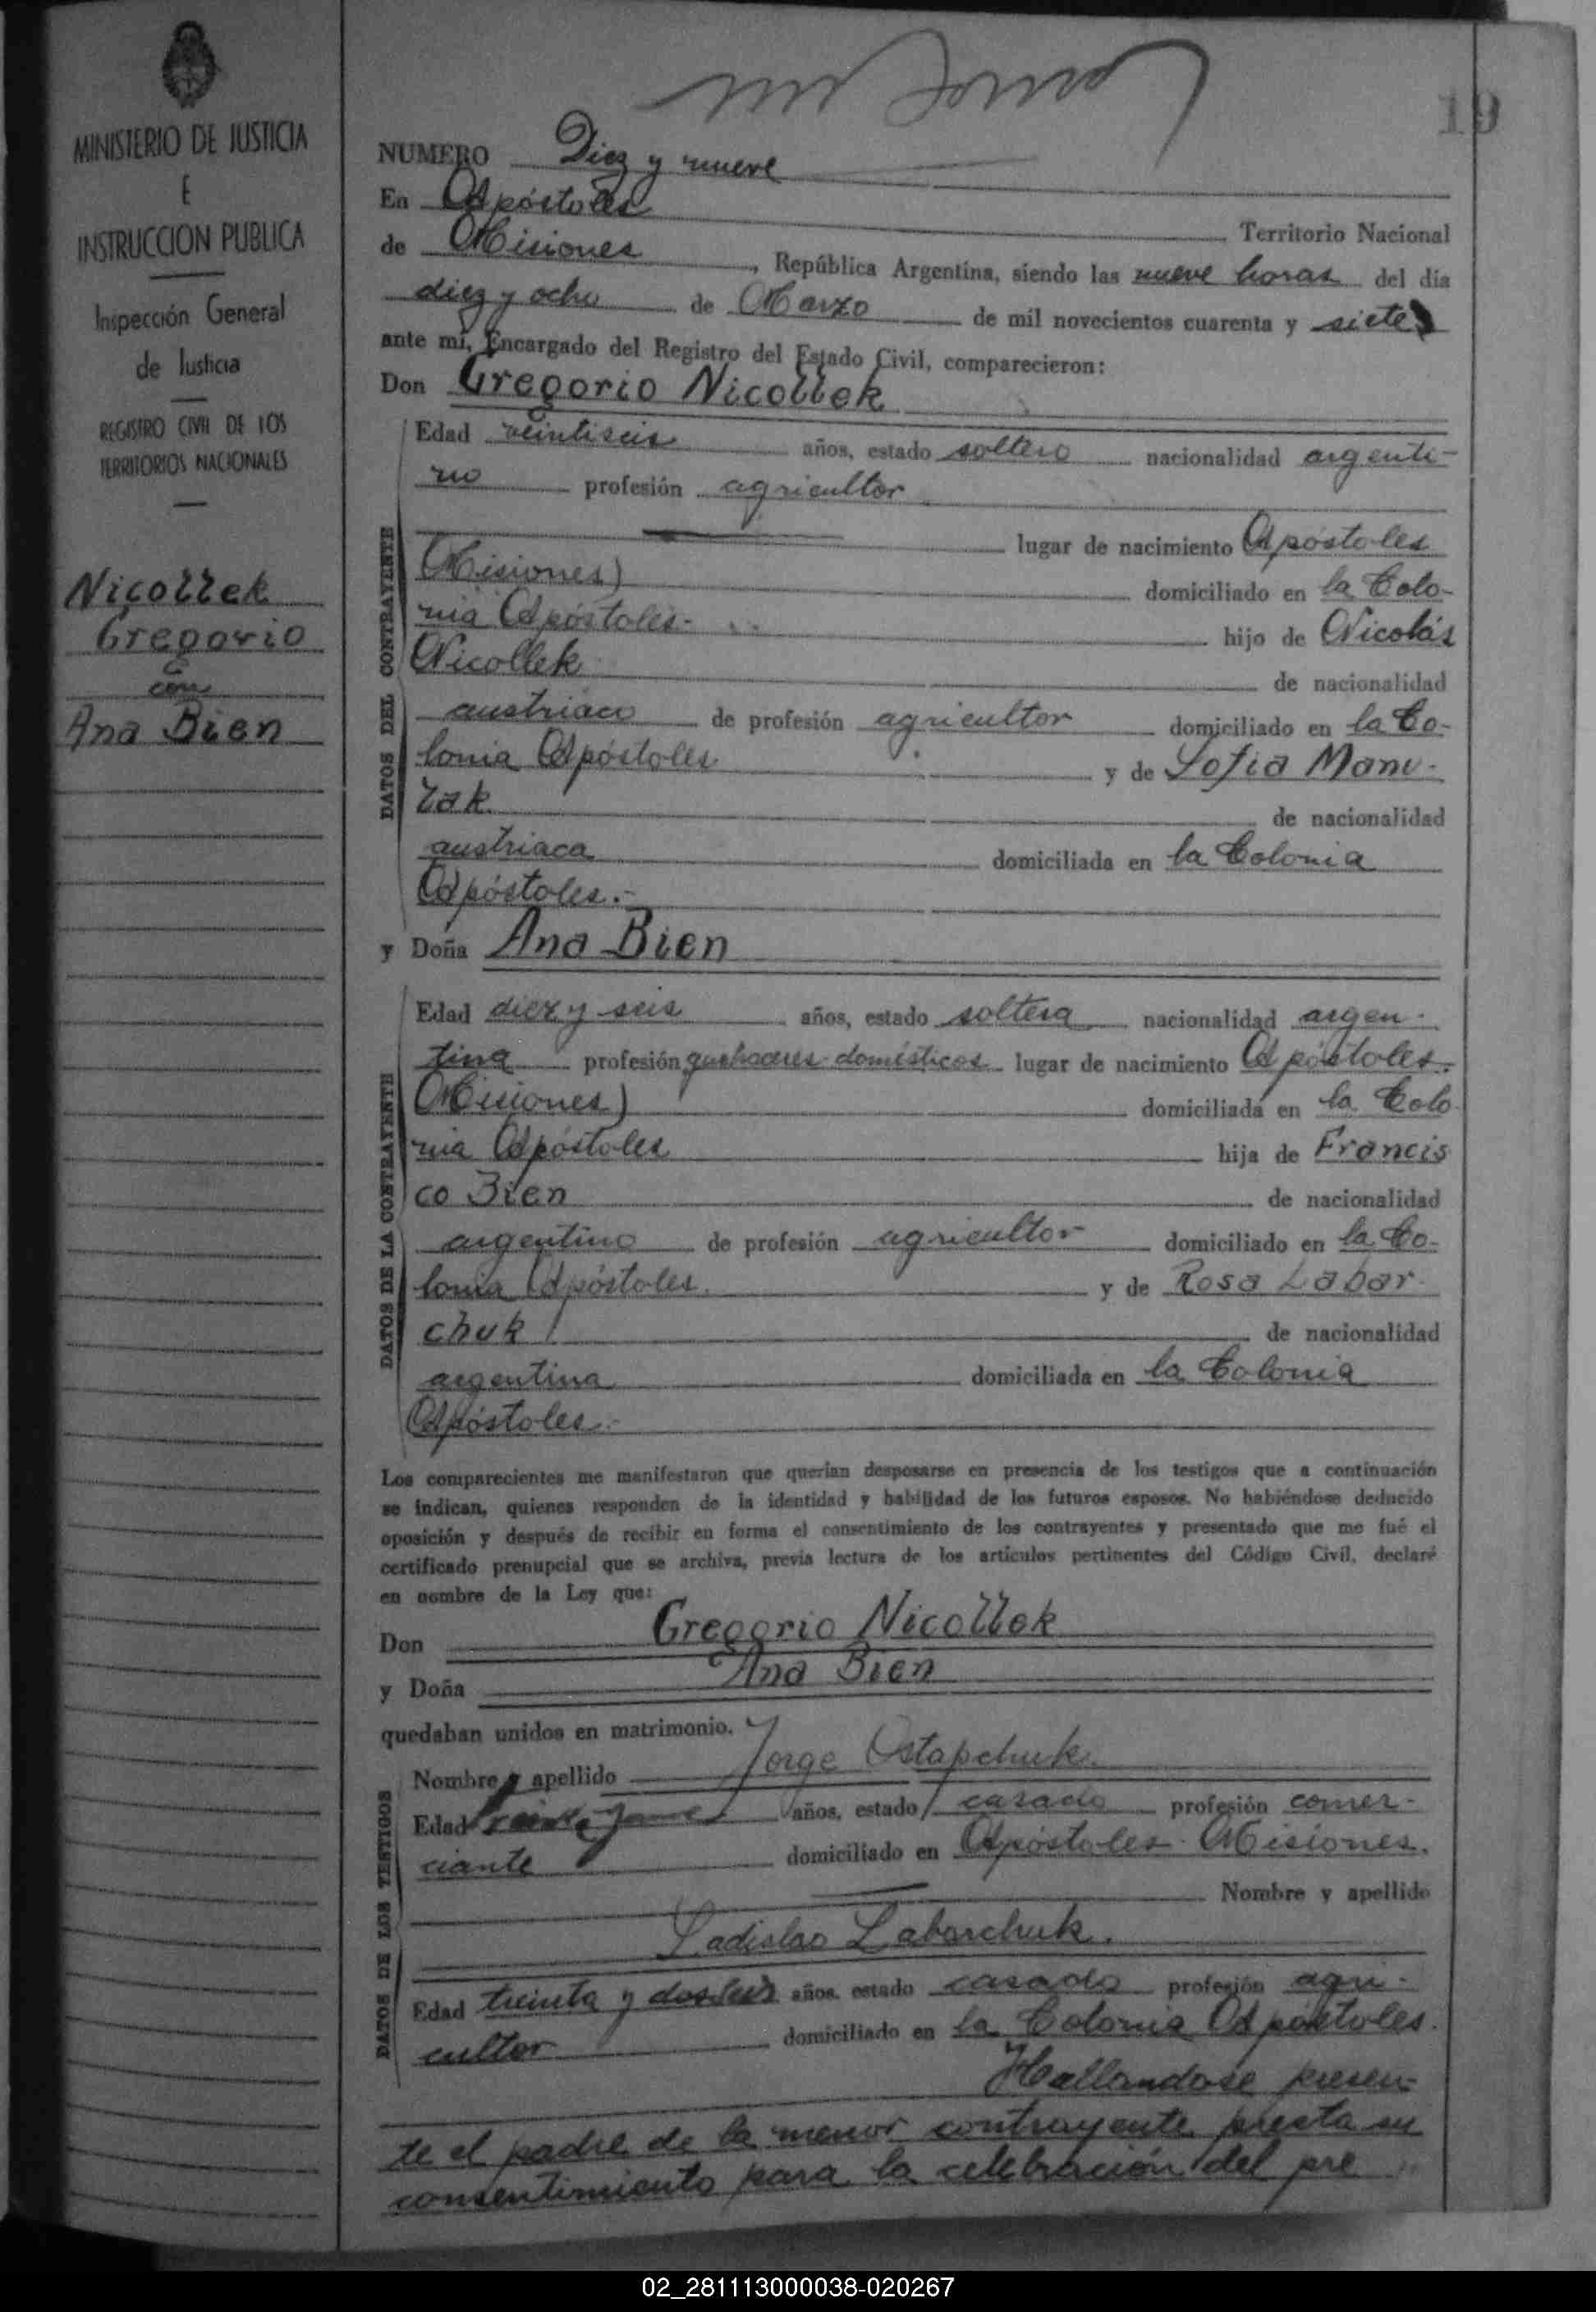 19
MINISTERIO DE JUSTICIA
E
INSTRUCCION PUBLICA
Inspección General
de Justicia
REGISTRO CIVIL DE LOS
TERRITORIOS NACIONALES
Nicollek
Gregorio
con
Ana Bien
NUMERO Diez y nueve
En Apóstoles Territorio Nacional
de Misiones, República Argentina, siendo las nueve horas del día
diez y ocho de Marzo de mil novecientos cuarenta y siete
ante mí, Encargado del Registro del Estado Civil, comparecieron:
Don Gregorio Nicollek
DATOS DEL CONTRAYENTE
Edad veintiseis años, estado soltero nacionalidad argenti-
no profesión agricultor
lugar de nacimiento Apóstoles
Misiones) domiciliado en la Colo-
nia Apóstoles- hijo de Nicolás
Nicollek de nacionalidad
austriaco de profesión agricultor domiciliado en la Co-
lonia Apóstoles y de Sofia Manu-
zak de nacionalidad
austriaca domiciliada en la Colonia
Apóstoles.-
y Doña Ana Bien
DATOS DE LA CONTRAYENTE
Edad diez y seis años, estado soltera nacionalidad argen-
tina profesión quehaceres domésticos lugar de nacimiento Apóstoles.
Misiones) domiciliada en la Colo
nia Apóstoles hija de Francis
co Bien de nacionalidad
argentino de profesión agricultor domiciliado en la Co-
lonia Apóstoles. y de Rosa Labar-
chuk de nacionalidad
argentina domiciliada en la Colonia
Apóstoles.-
Los comparecientes me manifestaron que querían desposarse en presencia de los testigos que a continuación
se indican, quienes responden de la identidad y habilidad de los futuros esposos. No habiéndose deducido
oposición y después de recibir en forma el consentimiento de los contrayentes y presentado que me fué el
certificado prenupcial que se archiva, previa lectura de los artículos pertinentes del Código Civil, declaré
en nombre de la Ley que:
Don Gregorio Nicollek
y Doña Ana Bien
quedaban unidos en matrimonio.
DATOS DE LOS TESTIGOS
Nombre y apellido Jorge Ostapchuk.
Edad años, estado casado profesión comer-
ciante domiciliado en Apóstoles Misiones.
Nombre y apellido
Ladislao Labarchuk.
Edad treinta y años, estado casado profesión agri-
cultor domiciliado en la Colonia Apóstoles.
Hallandose presen-
te el padre de la menor contrayente, presta su
consentimiento para la celebración del pre
02_281113000038-020267